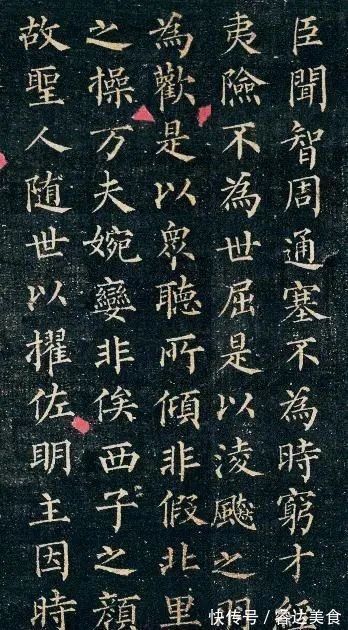 臣聞智周通塞不為時窮才經
夷險不為世屈是以淩飈之羽
為歡是以衆聽所傾非假北里
之操万夫婉孌非俟西子之顔
故聖人随世以擢佐明主因時
快传号/容达美食